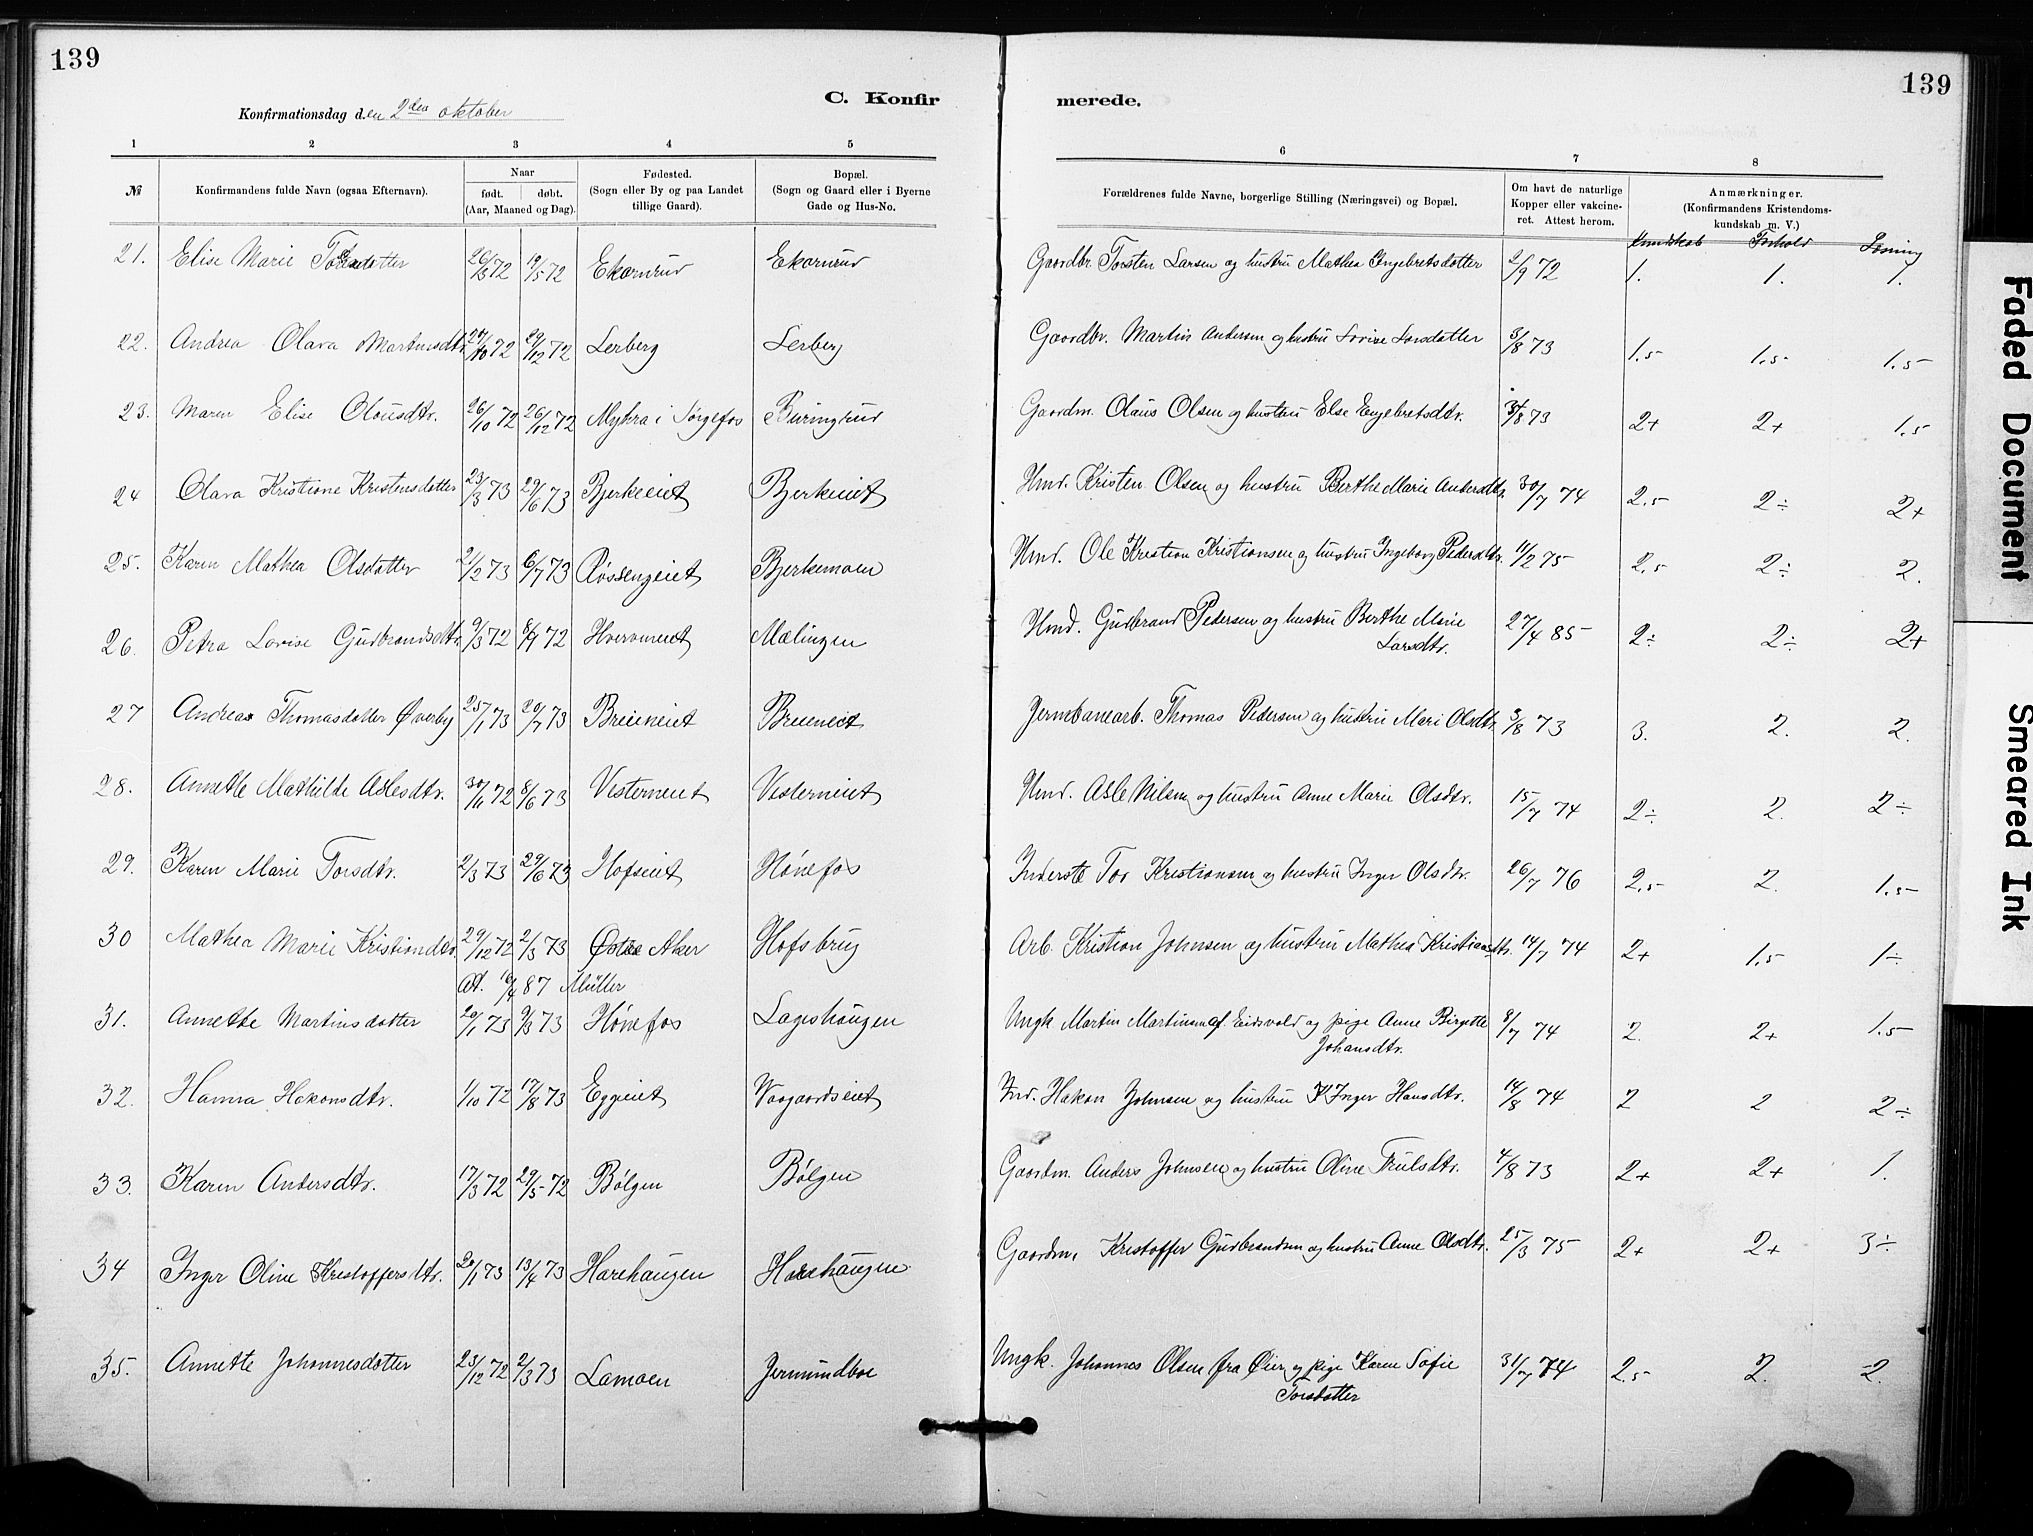 139
139
C. Konfir merede.
Konfirmationsdag den 2den oktober
1 2 3 4 5 6 7 8
№ Konfirmandens fulde Navn (ogsaa Efternavn). Naar født. døbt. (Aar, Maaned og Dag). Fødested. (Sogn eller By og paa Landet tillige Gaard). Bopæl. (Sogn og Gaard eller i Byerne Gade og Hus-No. Forældrenes fulde Navne, borgerlige Stilling (Næringsvei) og Bopæl. Om havt de naturlige Kopper eller vakcineret. Attest herom. Anmærkninger. (Konfirmandens Kristendomskundskab m. V.)
Kundskab Forhold Læsning
21. Elise Marie 26/3 72 19/5 72 Ekornrud Ekornrud Gaardbr. Torsten Larsen og hustru Mathea Ingebretsdatter 2/9 72 1. 1. 1.
22. Andrea Olava Martinsdtr. 27/10 72 29/12 72 Lerberg Lerberg Gaardbr. Martin Andersen og hustru Lovise Larsdatter 3/8 73 1.5 1.5 1.5
23. Maren Elise Olausdtr. 26/10 72 26/12 72 Mykra i Sørgefos Buringrud Gaardm. Olaus Olsen og hustru Else Engebretsdtr. /8 73 2+ 2+ 1.5
24 Olava Kristiane Kristensdatter 23/3 73 29/6 73 Bjerkeeiet Bjerkeiet Hmd. Kristen Olsen og hustru Berthe Marie Andersdtr. 30/7 74 2.5 2÷ 2+
25. Karen Mathea Olsdatter 21/2 73 6/7 73 Røssengeiet Bjerkemoen Hmd. Ole Kristian Kristiansen og hustru Ingeborg Pedersdtr. 11/2 75 2.5 2÷ 2.
26. Petra Lovise Gudbrandsdtr. 9/3 72 8/9 72 Hverveneiet Mælingen Hmd. Gudbrand Pedersen og hustru Berthe Marie 27/4 85 2÷ 2÷ 2+
Larsdtr.
27 Andrea Thomasdatter Øverby 25/1 73 20/7 73 Breieneiet Breieneiet Jernbanearb. Thomas Pedersen og hustru Mari Olsdtr. 3/8 73 3. 2. 2.
28. Annette Mathilde Aslesdtr. 30/11 72 8/6 73 Vesterneiet Vesterneiet Hmd. Asle Nilsen og hustru Anne Marie Olsdtr. 15/7 74 2÷ 2. 2÷
29. Karen Marie Torsdtr. 2/3 73 29/6 73 Hofseiet Hønefos Inderste Tor Kristiansen og hustru Inger Olsdtr. 26/7 76 2.5 2. 1.5
30 Mathea Marie Kristiandtr. 29/12 72 2/3 73 Østre Aker Hofsbrug Arb. Kristian Johnsen og hustru Mathea Kristiansdtr. 14/7 74 2+ 1.5 1÷
At. 16/4 87 Müller
31. Annette Martinsdatter 20/1 73 9/3 73 Hønefos Lageshaugen Ungk Martin Martinsen af Eidsvold og pige Anne Birgitte 8/7 74 2. 2+ 1.5
Johansdtr.
32. Hanna Hakonsdtr. 1/10 72 17/8 73 Eggeiet Vaagaardseiet Ind. Hakon Johnsen og hustru Inger Hansdtr. 14/8 74 2 2 2÷
33. Karen Andersdtr. 17/3 72 29/5 72 Bølgen Bølgen Gaardm. Anders Johnsen og hustru Oline Trulsdtr. 4/8 73 2+ 2+ 1.
34 Inger Oline Kristoffersdtr. 20/1 73 13/4 73 Harehaugen Harehaugen Gaardm. Kristoffer Gudbrandsen og hustru Anne Olsdtr. 25/3 75 2+ 2+ 3÷
35. Annette Johannesdatter 23/12 72 2/3 73 Lamoen Jermundboe Ungk. Johannes Olsen fra Øier og pige Karen Sofie 31/7 74 2.5 2. 2.
Torsdatter
Faded Document
Smeared Ink